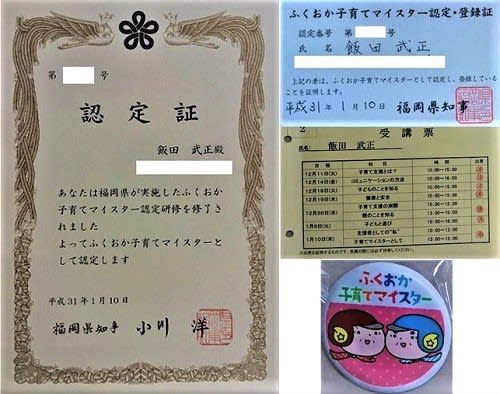 第 号
認定証
飯田 武正殿
あなたは福岡県が実施したふくおか
子育てマイスター認定研修を修了さ
れました
よってふくおか子育てマイスターと
して認定します
平成31年1月10日
福岡県知事 小川 洋
ふくおか子育てマイスター認定・登録証
認定番号 第 号
氏名 飯田 武正
上記の者は、ふくおか子育てマイスターとして認定し、登録している
ことを証明します。
平成31年1月10日 福岡県知事
2 受講票
氏名: 飯田 武正
日程 科目 時間 出席
12月11日(火) 子育て支援とは? 10:00~15:30
12月14日(金) コミュニケーションの方法 10:00~16:00
12月18日(火) 子どものことを知る 10:00~15:00
健康と安全
子育て支援の実際
12月26日(水) 親のことを知る
1月8日(火) 子どもと遊び
支援者としての"私"
1月10日(木) 子育てマイスターとして
ふくおか
子育てマイスター